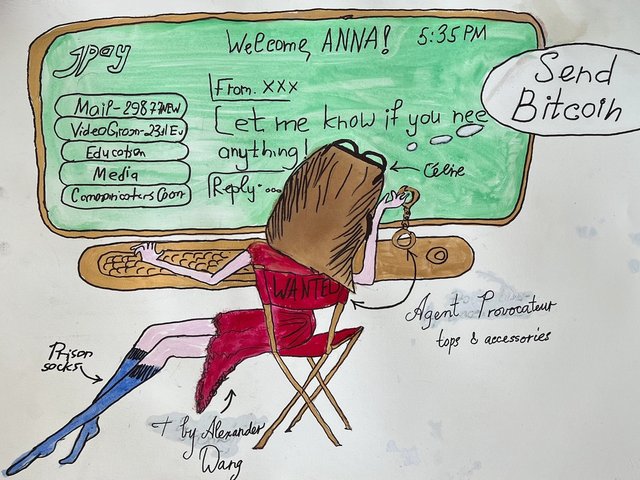 jpay
Welcome, ANNA!
5:35 PM
Send
Bitcoin
From: XXX
Let me know if you nee
anything!
Reply....
Mail- NEW
Education
Media
WANTED
Celine
Agent Provocateur
tops & accessories
Prison
socks
by Alexander
Wang